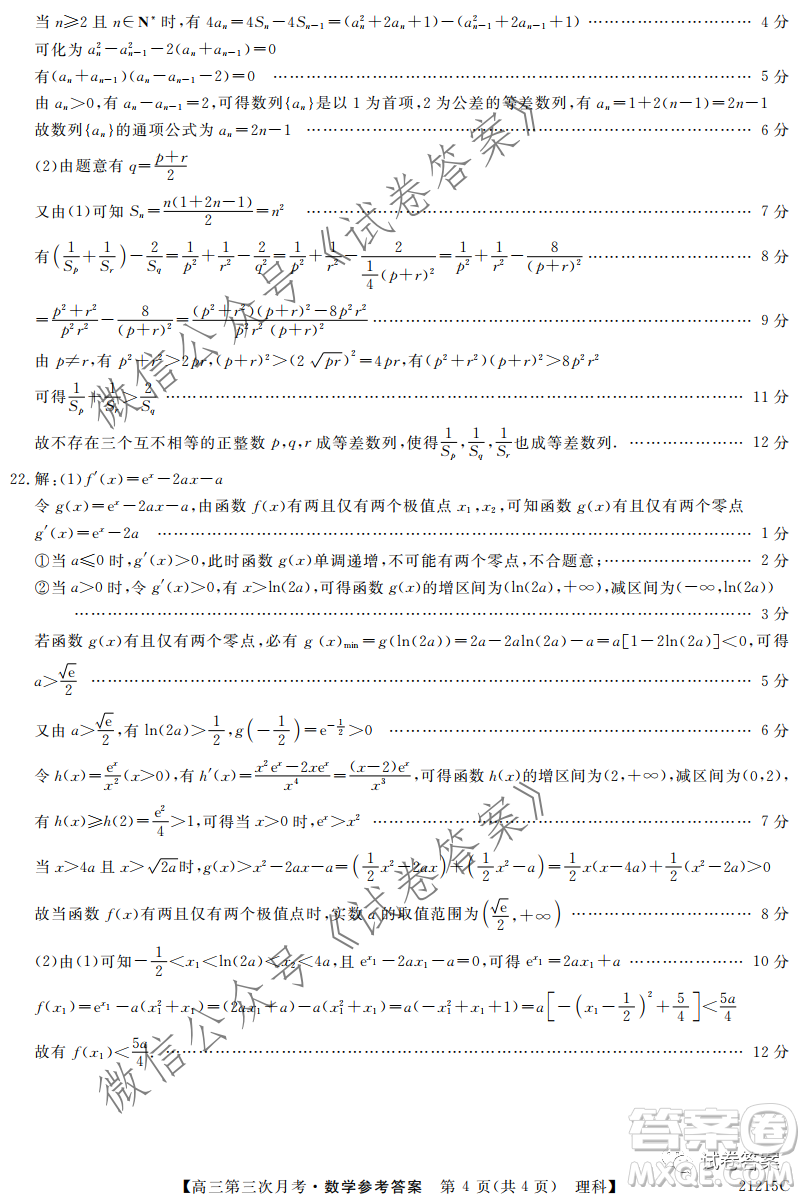 当 n≥2 且 n∈N* 时,有 4aₙ=4Sₙ-4Sₙ₋₁=(aₙ²+2aₙ+1)-(aₙ₋₁²+2aₙ₋₁+1) …… 4 分
可化为 aₙ²-aₙ₋₁²-2(aₙ+aₙ₋₁)=0
有(aₙ+aₙ₋₁)(aₙ-aₙ₋₁-2)=0 …… 5 分
由 aₙ>0,有 aₙ-aₙ₋₁=2,可得数列{aₙ}是以 1 为首项,2 为公差的等差数列,有 aₙ=1+2(n-1)=2n-1
故数列{aₙ}的通项公式为 aₙ=2n-1 …… 6 分
(2)由题意有 q=(p+r)/2
又由(1)可知 Sₙ=n(1+2n-1)/2=n² …… 7 分
有(1/S_p+1/S_r)-2/S_q=1/p²+1/r²-2/q²=1/p²+1/r²-2/(1/4(p+r)²)=1/p²+1/r²-8/(p+r)² …… 8 分
=(p²+r²)/(p²r²)-8/(p+r)²=((p²+r²)(p+r)²-8p²r²)/(p²r²(p+r)²) …… 9 分
由 p≠r,有 p²+r²>2pr,(p+r)²>(2√(pr))²=4pr,有(p²+r²)(p+r)²>8p²r²
可得1/S_p+1/S_r>2/S_q …… 11 分
故不存在三个互不相等的正整数 p,q,r 成等差数列,使得1/S_p,1/S_q,1/S_r也成等差数列. …… 12 分
22.解:(1)f′(x)=eˣ-2ax-a
令 g(x)=eˣ-2ax-a,由函数 f(x)有两且仅有两个极值点 x₁,x₂,可知函数 g(x)有两个零点
g′(x)=eˣ-2a …… 1 分
①当 a≤0 时,g′(x)>0,此时函数 g(x)单调递增,不可能有两个零点,不合题意; …… 2 分
②当 a>0 时,令 g′(x)>0,有 x>ln(2a),可得函数 g(x)的增区间为(ln(2a),+∞),减区间为(-∞,ln(2a))
…… 3 分
若函数 g(x)有且仅有两个零点,必有 g (x)min=g(ln(2a))=2a-2aln(2a)-a=a[1-2ln(2a)]<0,可得
a>√e/2 …… 5 分
又由 a>√e/2,有 ln(2a)>1/2,g(-1/2)=e^(-1/2)>0 …… 6 分
令 h(x)=eˣ/x²(x>0),有 h′(x)=(x²eˣ-2xeˣ)/x⁴=(x-2)eˣ/x³,可得函数 h(x)的增区间为(2,+∞),减区间为(0,2),
有 h(x)≥h(2)=e²/4>1,可得当 x>0 时,eˣ>x² …… 7 分
当 x>4a 且 x>√(2a)时,g(x)>x²-2ax-a=(1/2x²-2ax)+(1/2x²-a)=1/2x(x-4a)+1/2(x²-2a)>0
故当函数 f(x)有两且仅有两个极值点时,实数 a 的取值范围为(√e/2,+∞) …… 8 分
(2)由(1)可知-1/2<x₁<ln(2a)<x₂<4a,且 e^(x₁)-2ax₁-a=0,可得 e^(x₁)=2ax₁+a …… 10 分
f(x₁)=e^(x₁)-a(x₁²+x₁)=(2ax₁+a)-a(x₁²+x₁)=a(-x₁²+x₁+1)=a[-(x₁-1/2)²+5/4]<5a/4
故有 f(x₁)<5a/4. …… 12 分
微信公众号《试卷答案》
微信公众号《试卷答案》
答案圈
试卷答案
MXQE.COM
【高三第三次月考·数学参考答案 第 4 页(共 4 页) 理科】
21215C